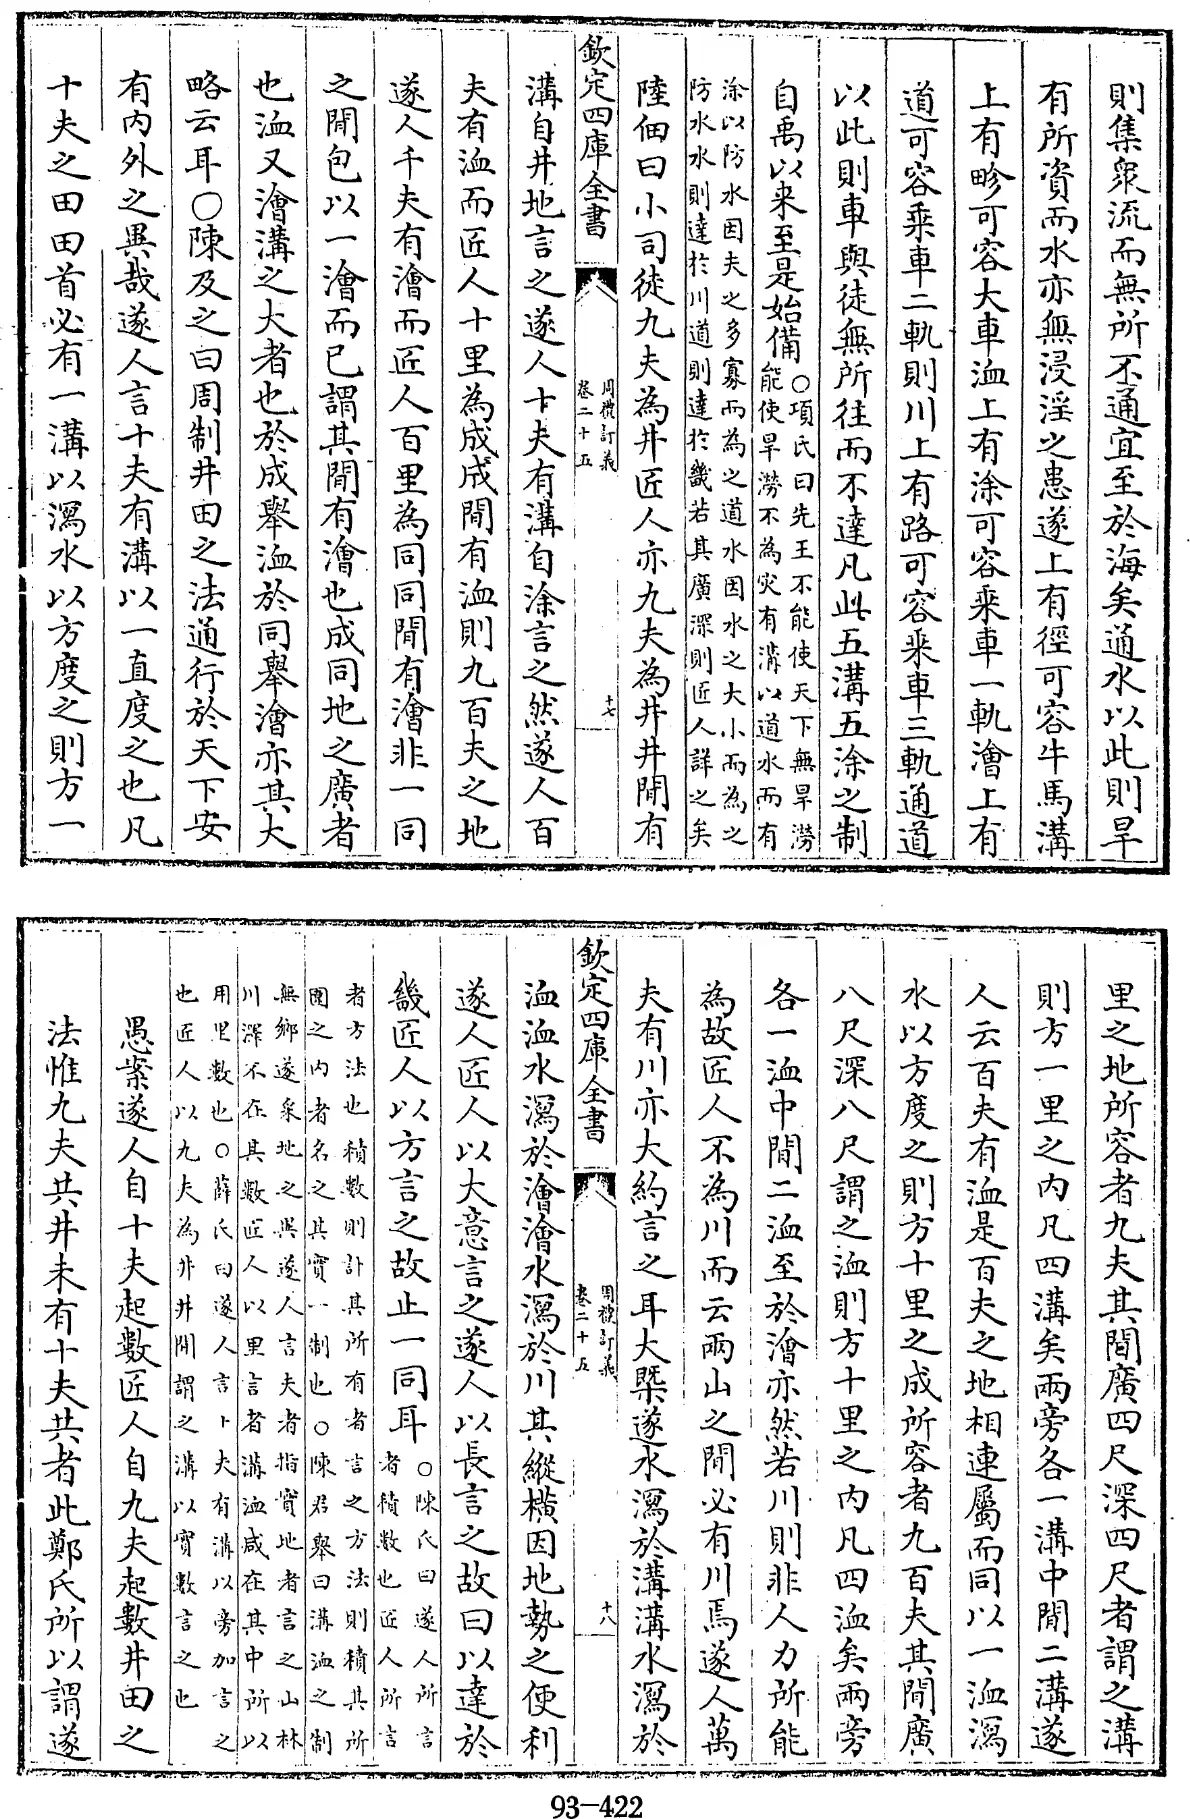 則集衆流而無所不通宜至於海矣通水以此則旱
有所資而水亦無浸淫之患遂上有徑可容牛馬溝
上有畛可容大車洫上有涂可容乗車一軌澮上有
道可容乗車二軌則川上有路可容乘車三軌通道
以此則車與徒無所往而不達凡此五溝五涂之制
自禹以來至是始備〇項氏曰先王不能使天下無旱澇
能使旱澇不為灾有溝以道水而有
涂以防水因夫之多寡而為之道水因水之大小而為之
防水水則達於川道則達於畿若其廣深則匠人詳之矣
陸佃曰小司徒九夫為井匠人亦九夫為井井間有
欽定四庫全書
周禮訂義
卷二十五
十七
溝自井地言之遂人十夫有溝自涂言之然遂人百
夫有洫而匠人十里為成成間有洫則九百夫之地
遂人千夫有澮而匠人百里為同同間有澮非一同
之間包以一澮而已謂其間有澮也成同地之廣者
也洫又澮溝之大者也於成舉洫於同舉澮亦其大
略云耳〇陳及之曰周制井田之法通行於天下安
有内外之異哉遂人言十夫有溝以一直度之也凡
十夫之田田首必有一溝以瀉水以方度之則方一
里之地所容者九夫其間廣四尺深四尺者謂之溝
則方一里之内凡四溝矣兩旁各一溝中間二溝遂
人云百夫有洫是百夫之地相連屬而同以一洫瀉
水以方度之則方十里之成所容者九百夫其間廣
八尺深八尺謂之洫則方十里之内凡四洫矣兩旁
各一洫中間二洫至於澮亦然若川則非人力所能
為故匠人不為川而云兩山之間必有川焉遂人萬
夫有川亦大約言之耳大槩遂水瀉於溝溝水瀉於
欽定四庫全書
周禮訂義
卷二十五
十八
洫洫水瀉於澮澮水瀉於川其縱横因地勢之便利
遂人匠人以大意言之遂人以長言之故曰以達於
畿匠人以方言之故止一同耳〇陳氏曰遂人所言
者積數也匠人所言
者方法也積數則計其所有者言之方法則積其所
圍之内者名之其實一制也〇陳君舉曰溝洫之制
無鄉遂采地之異遂人言夫者指實地者言之山林
川澤不在其數匠人以里言者溝洫咸在其中所以
用里數也〇薛氏曰遂人言十夫有溝以旁加言之
也匠人以九夫為井井間謂之溝以實數言之也
愚案遂人自十夫起數匠人自九夫起數井田之
法惟九夫共井未有十夫共者此鄭氏所以謂遂
93-422